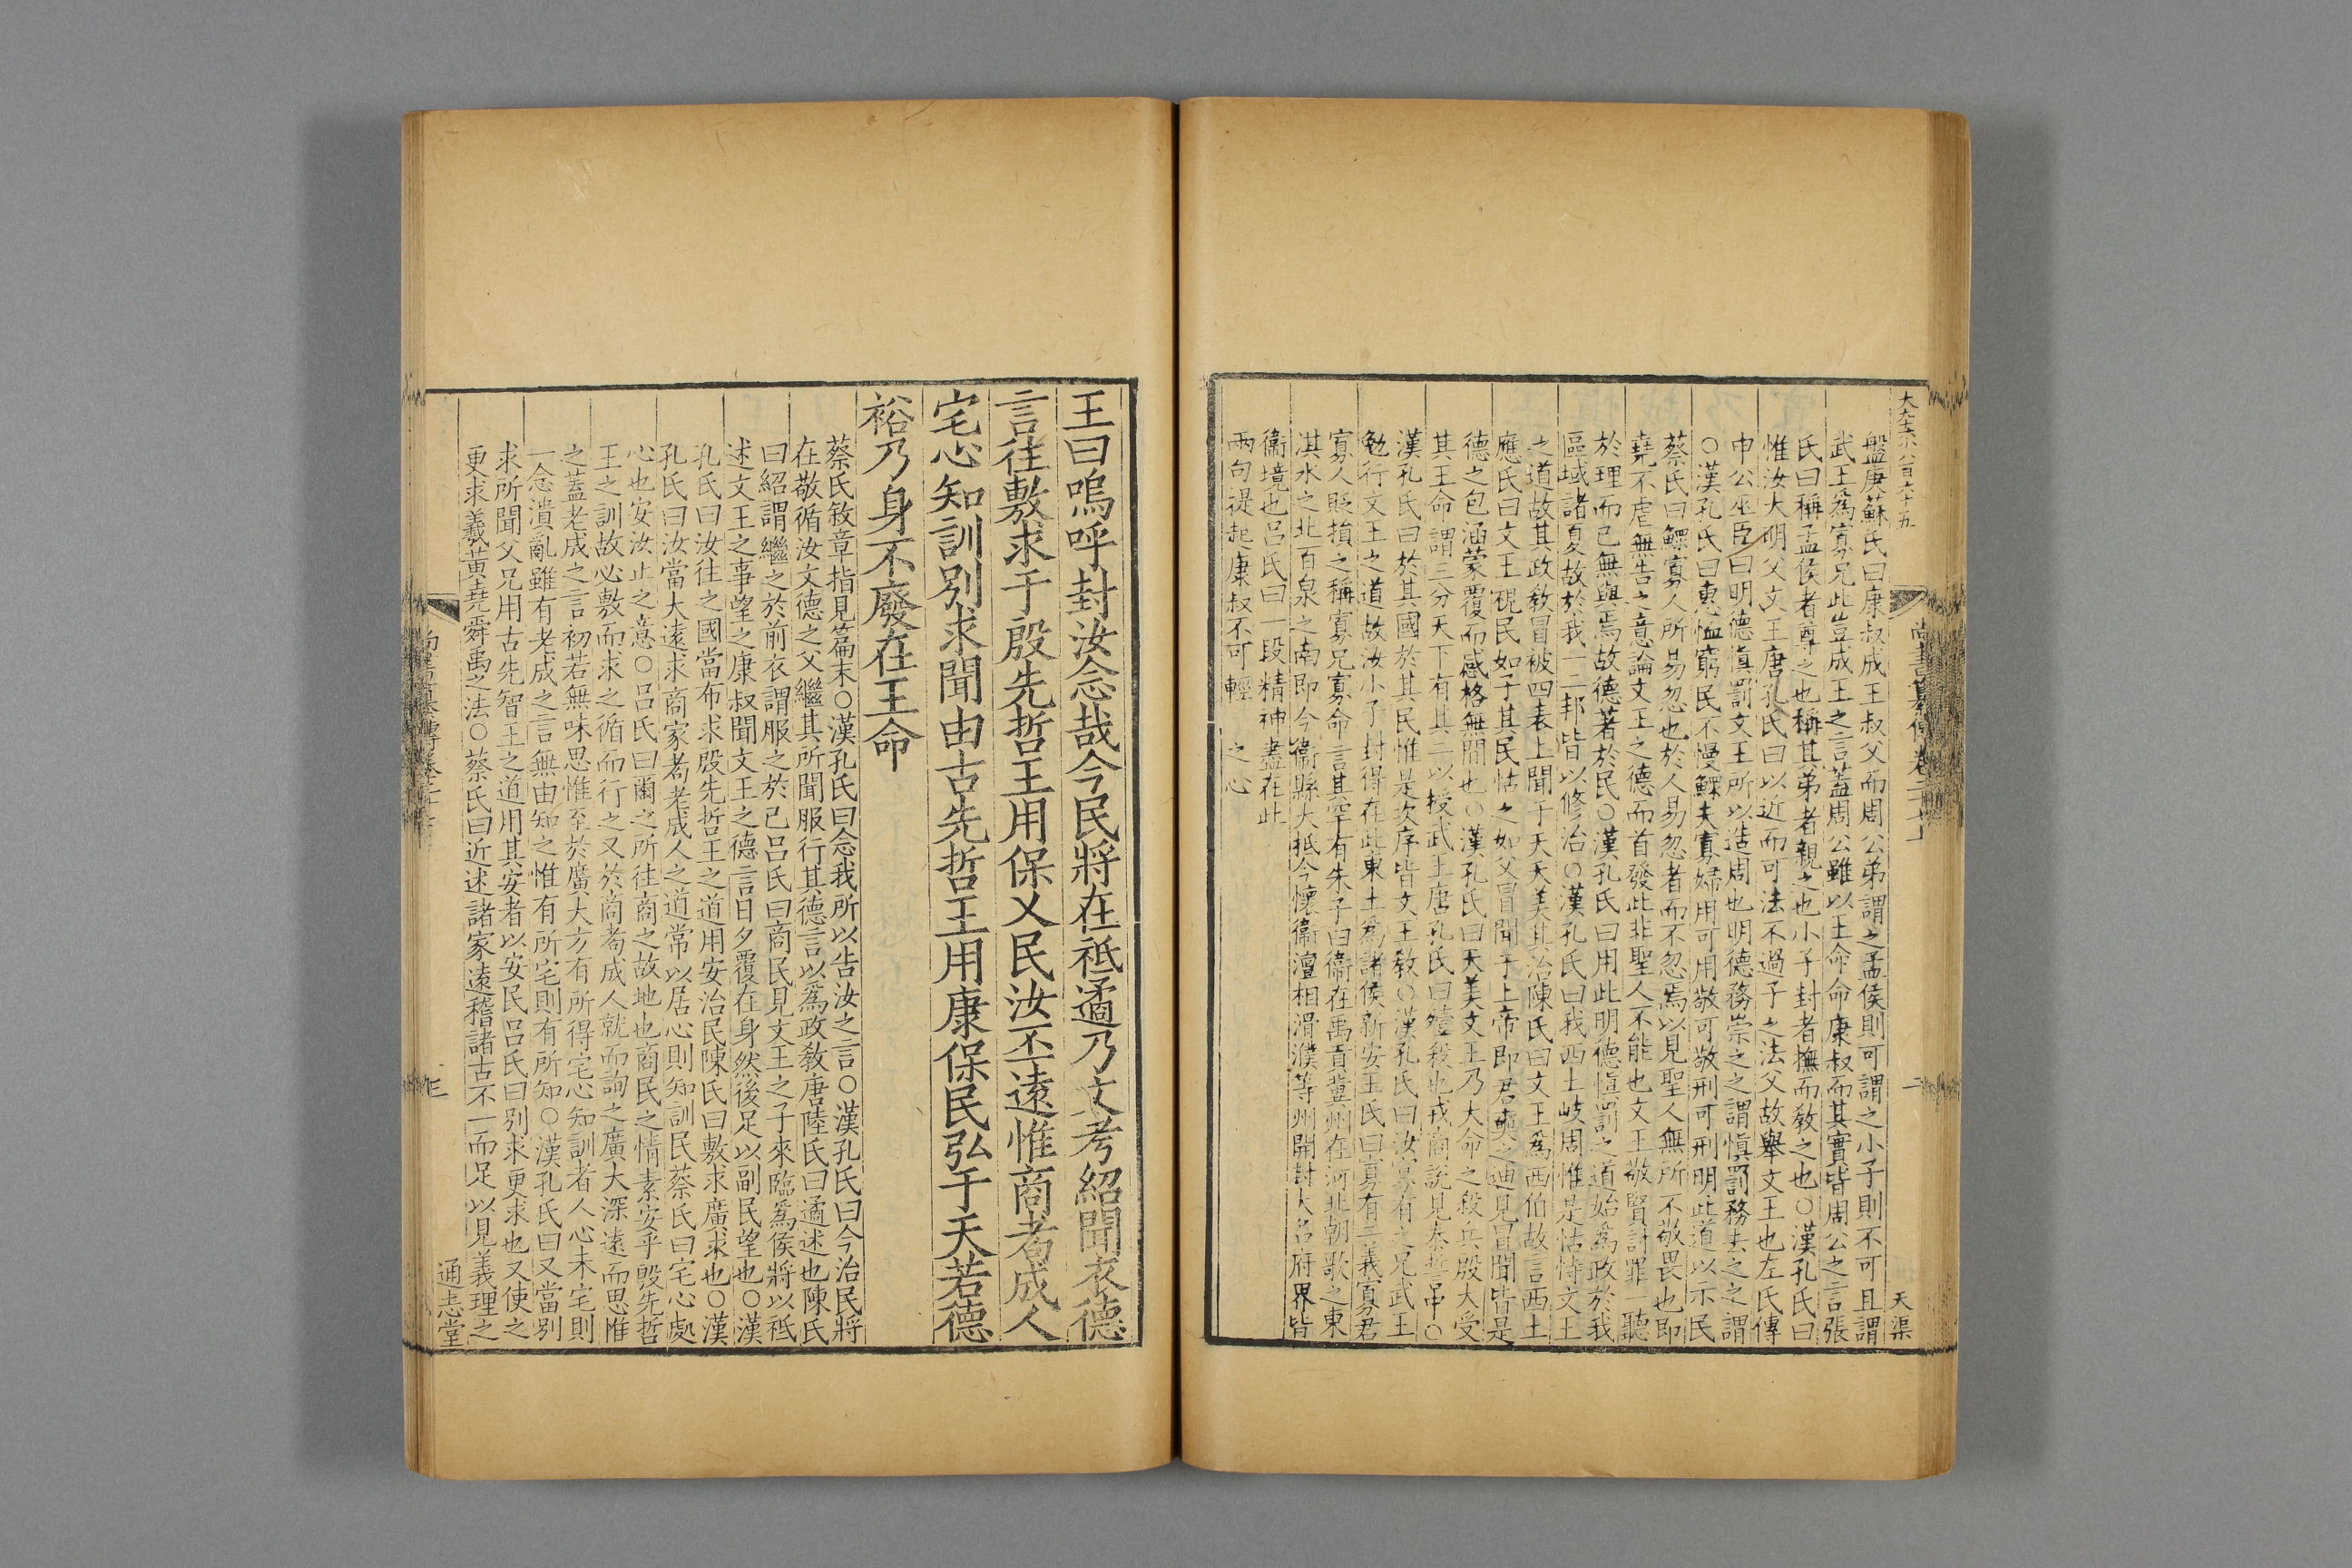 盤庚蘇氏曰康叔成王叔父而周公弟謂之孟侯則可謂之小子則不可且謂
武王爲寡兄此豈成王之言蓋周公雖以王命命康叔而其實皆周公之言張
氏曰稱孟侯者尊之也稱其弟者親之也小子封者撫而敎之也○漢孔氏曰
惟汝大明父文王唐孔氏曰以近而可法不過子之法父故舉文王也左氏傳
申公巫臣曰明德愼罰文王所以造周也明德務崇之之謂愼罰務去之之謂
○漢孔氏曰惠恤窮民不慢鰥夫寡婦用可用敬可敬刑可刑明此道以示民
蔡氏曰鰥寡人所易忽也於人易忽者而不忽焉以見聖人無所不敬畏也即
堯不虐無告之意論文王之德而首發此非聖人不能也文王敬賢討罪一聽
於理而已無與焉故德著於民○漢孔氏曰用此明德愼罰之道始爲政於我
區域諸夏故於我一二邦皆以修治○漢孔氏曰我西土岐周惟是怙恃文王
之道故其政敎冒被四表上聞于天天美其治陳氏曰文王爲西伯故言西土
應氏曰文王視民如子其民怙之如父冒聞于上帝即君奭之迪見冒聞皆是
德之包涵蒙覆而感格無間也○漢孔氏曰天美文王乃大命之殺兵殷大受
其王命謂三分天下有其二以授武王唐孔氏曰殪殺也戎商說見泰誓中○
漢孔氏曰於其國於其民惟是次序皆文王敎○漢孔氏曰汝寡有之兄武王
勉行文王之道故汝小子封得在此東土爲諸侯新安王氏曰寡有二義寡君
寡人貶損之稱寡兄寡命言其罕有朱子曰衞在禹貢冀州在河北朝歌之東
淇水之北百泉之南即今衞縣大抵今懷衞澶相滑濮等州開封大名府界皆
衞境也呂氏曰一段精神盡在此
兩句提起康叔不可輕 之心
天渠
王曰嗚呼封汝念哉今民將在祗遹乃文考紹聞衣德
言往敷求于殷先哲王用保乂民汝丕遠惟商耇成人
宅心知訓別求聞由古先哲王用康保民弘于天若德
裕乃身不廢在王命
蔡氏敍章指見篇末○漢孔氏曰念我所以告汝之言○漢孔氏曰今治民將
在敬循汝文德之父繼其所聞服行其德言以爲政敎唐陸氏曰遹述也陳氏
曰紹謂繼之於前衣謂服之於己呂氏曰商民見文王之子來臨爲侯將以祗
述文王之事望之康叔聞文王之德言日夕覆在身然後足以副民望也○漢
孔氏曰汝往之國當布求殷先哲王之道用安治民陳氏曰敷求廣求也○漢
孔氏曰汝當大遠求商家耇老成人之道常以居心則知訓民蔡氏曰宅心處
心也安汝止之意○呂氏曰爾之所往商之故地也商民之情素安乎殷先哲
王之訓故必敷而求之循而行之又於商耇成人就而詢之廣大深遠而思惟
之蓋老成之言初若無味思惟至於廣大方有所得宅心知訓者人心未宅則
一念潰亂雖有老成之言無由知之惟有所宅則有所知○漢孔氏曰又當別
求所聞父兄用古先智王之道用其安者以安民呂氏曰別求更求也又使之
更求羲黃堯舜禹之法○蔡氏曰近述諸家遠稽諸古不一而足以見義理之
通志堂